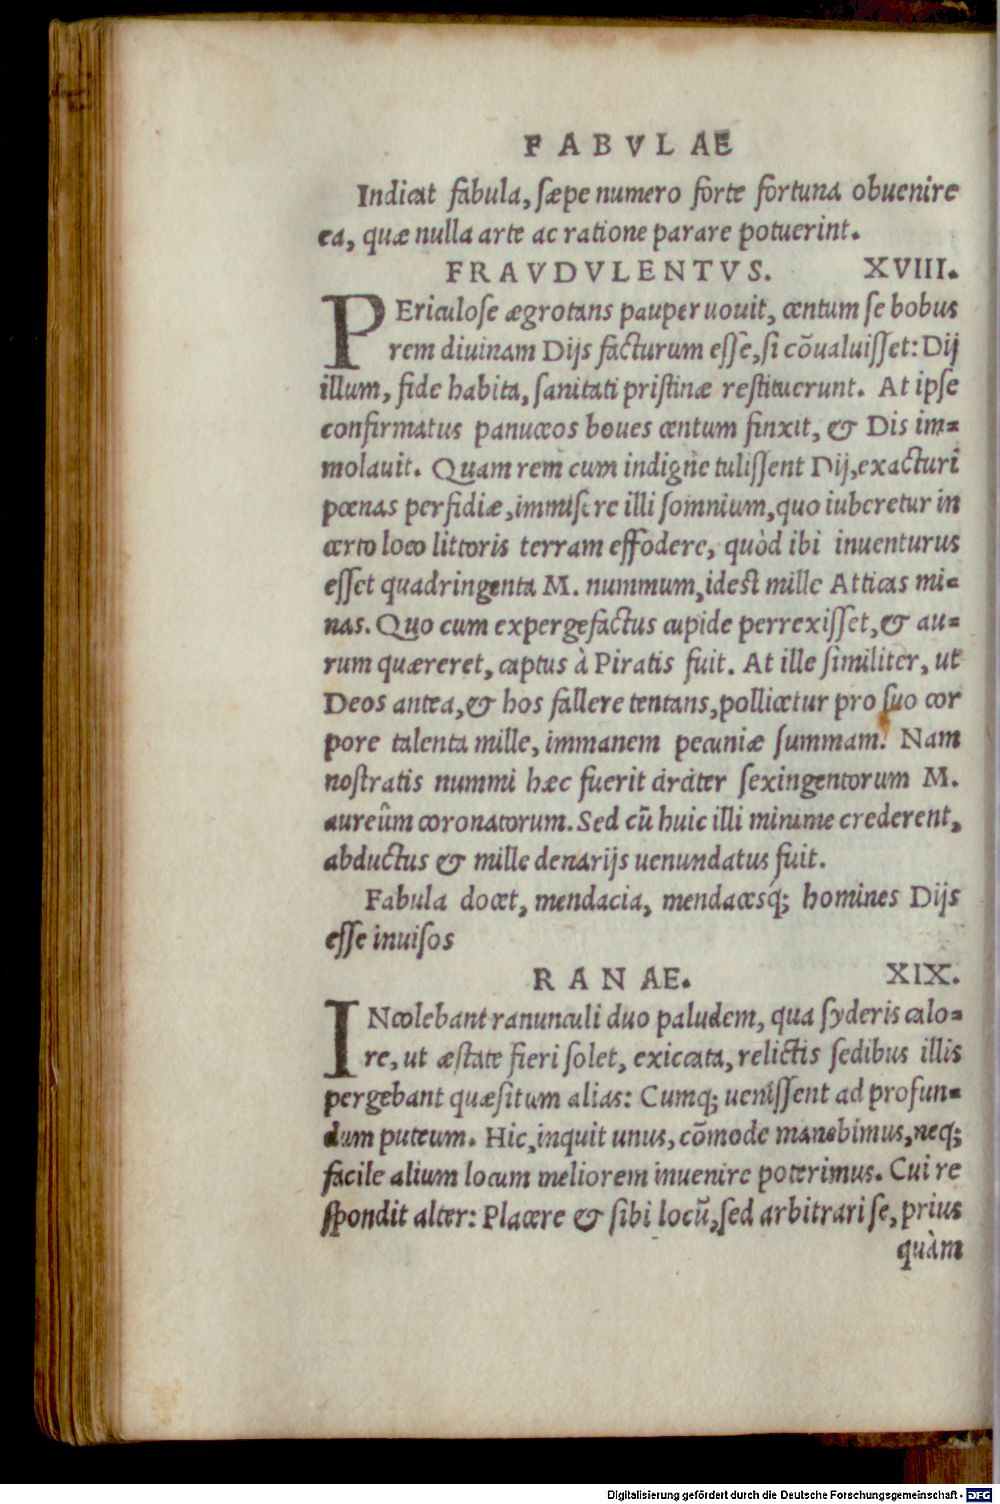 FABVLAE
Indicat fabula, sæpe numero forte fortuna obuenire
ea, quæ nulla arte ac ratione parare potuerint.
FRAVDVLENTVS. XVIII.
PEriculose ægrotans pauper uouit, centum se bobus
rem diuinam Dijs facturum esse, si cōualuisset: Dij
illum, fide habita, sanitati pristinæ restituerunt. At ipse
confirmatus panuceos boues centum finxit, & Dis im=
molauit. Quam rem cum indigne tulissent Dij, exacturi
pœnas perfidiæ, immisere illi somnium, quo iuberetur in
certo loco littoris terram effodere, quòd ibi inuenturus
esset quadringenta M. nummum, idest mille Atticas mi=
nas. Quo cum expergefactus cupide perrexisset, & au=
rum quæreret, captus à Piratis fuit. At ille similiter, ut
Deos antea, & hos fallere tentans, pollicetur pro suo cor
pore talenta mille, immanem pecuniæ summam. Nam
nostratis nummi hæc fuerit circiter sexingentorum M.
aureûm coronatorum. Sed cū huic illi minime crederent,
abductus & mille denarijs uenundatus fuit.
Fabula docet, mendacia, mendacesq; homines Dijs
esse inuisos
RANAE. XIX.
INcolebant ranunculi duo paludem, qua syderis calo=
re, ut æstate fieri solet, exiccata, relictis sedibus illis
pergebant quæsitum alias: Cumq; uenissent ad profun=
dum puteum. Hic, inquit unus, cōmode manebimus, neq;
facile alium locum meliorem inuenire poterimus. Cui re
spondit alter: Placere & sibi locū, sed arbitrari se, prius
quàm
Digitalisierung gefördert durch die Deutsche Forschungsgemeinschaft - DFG